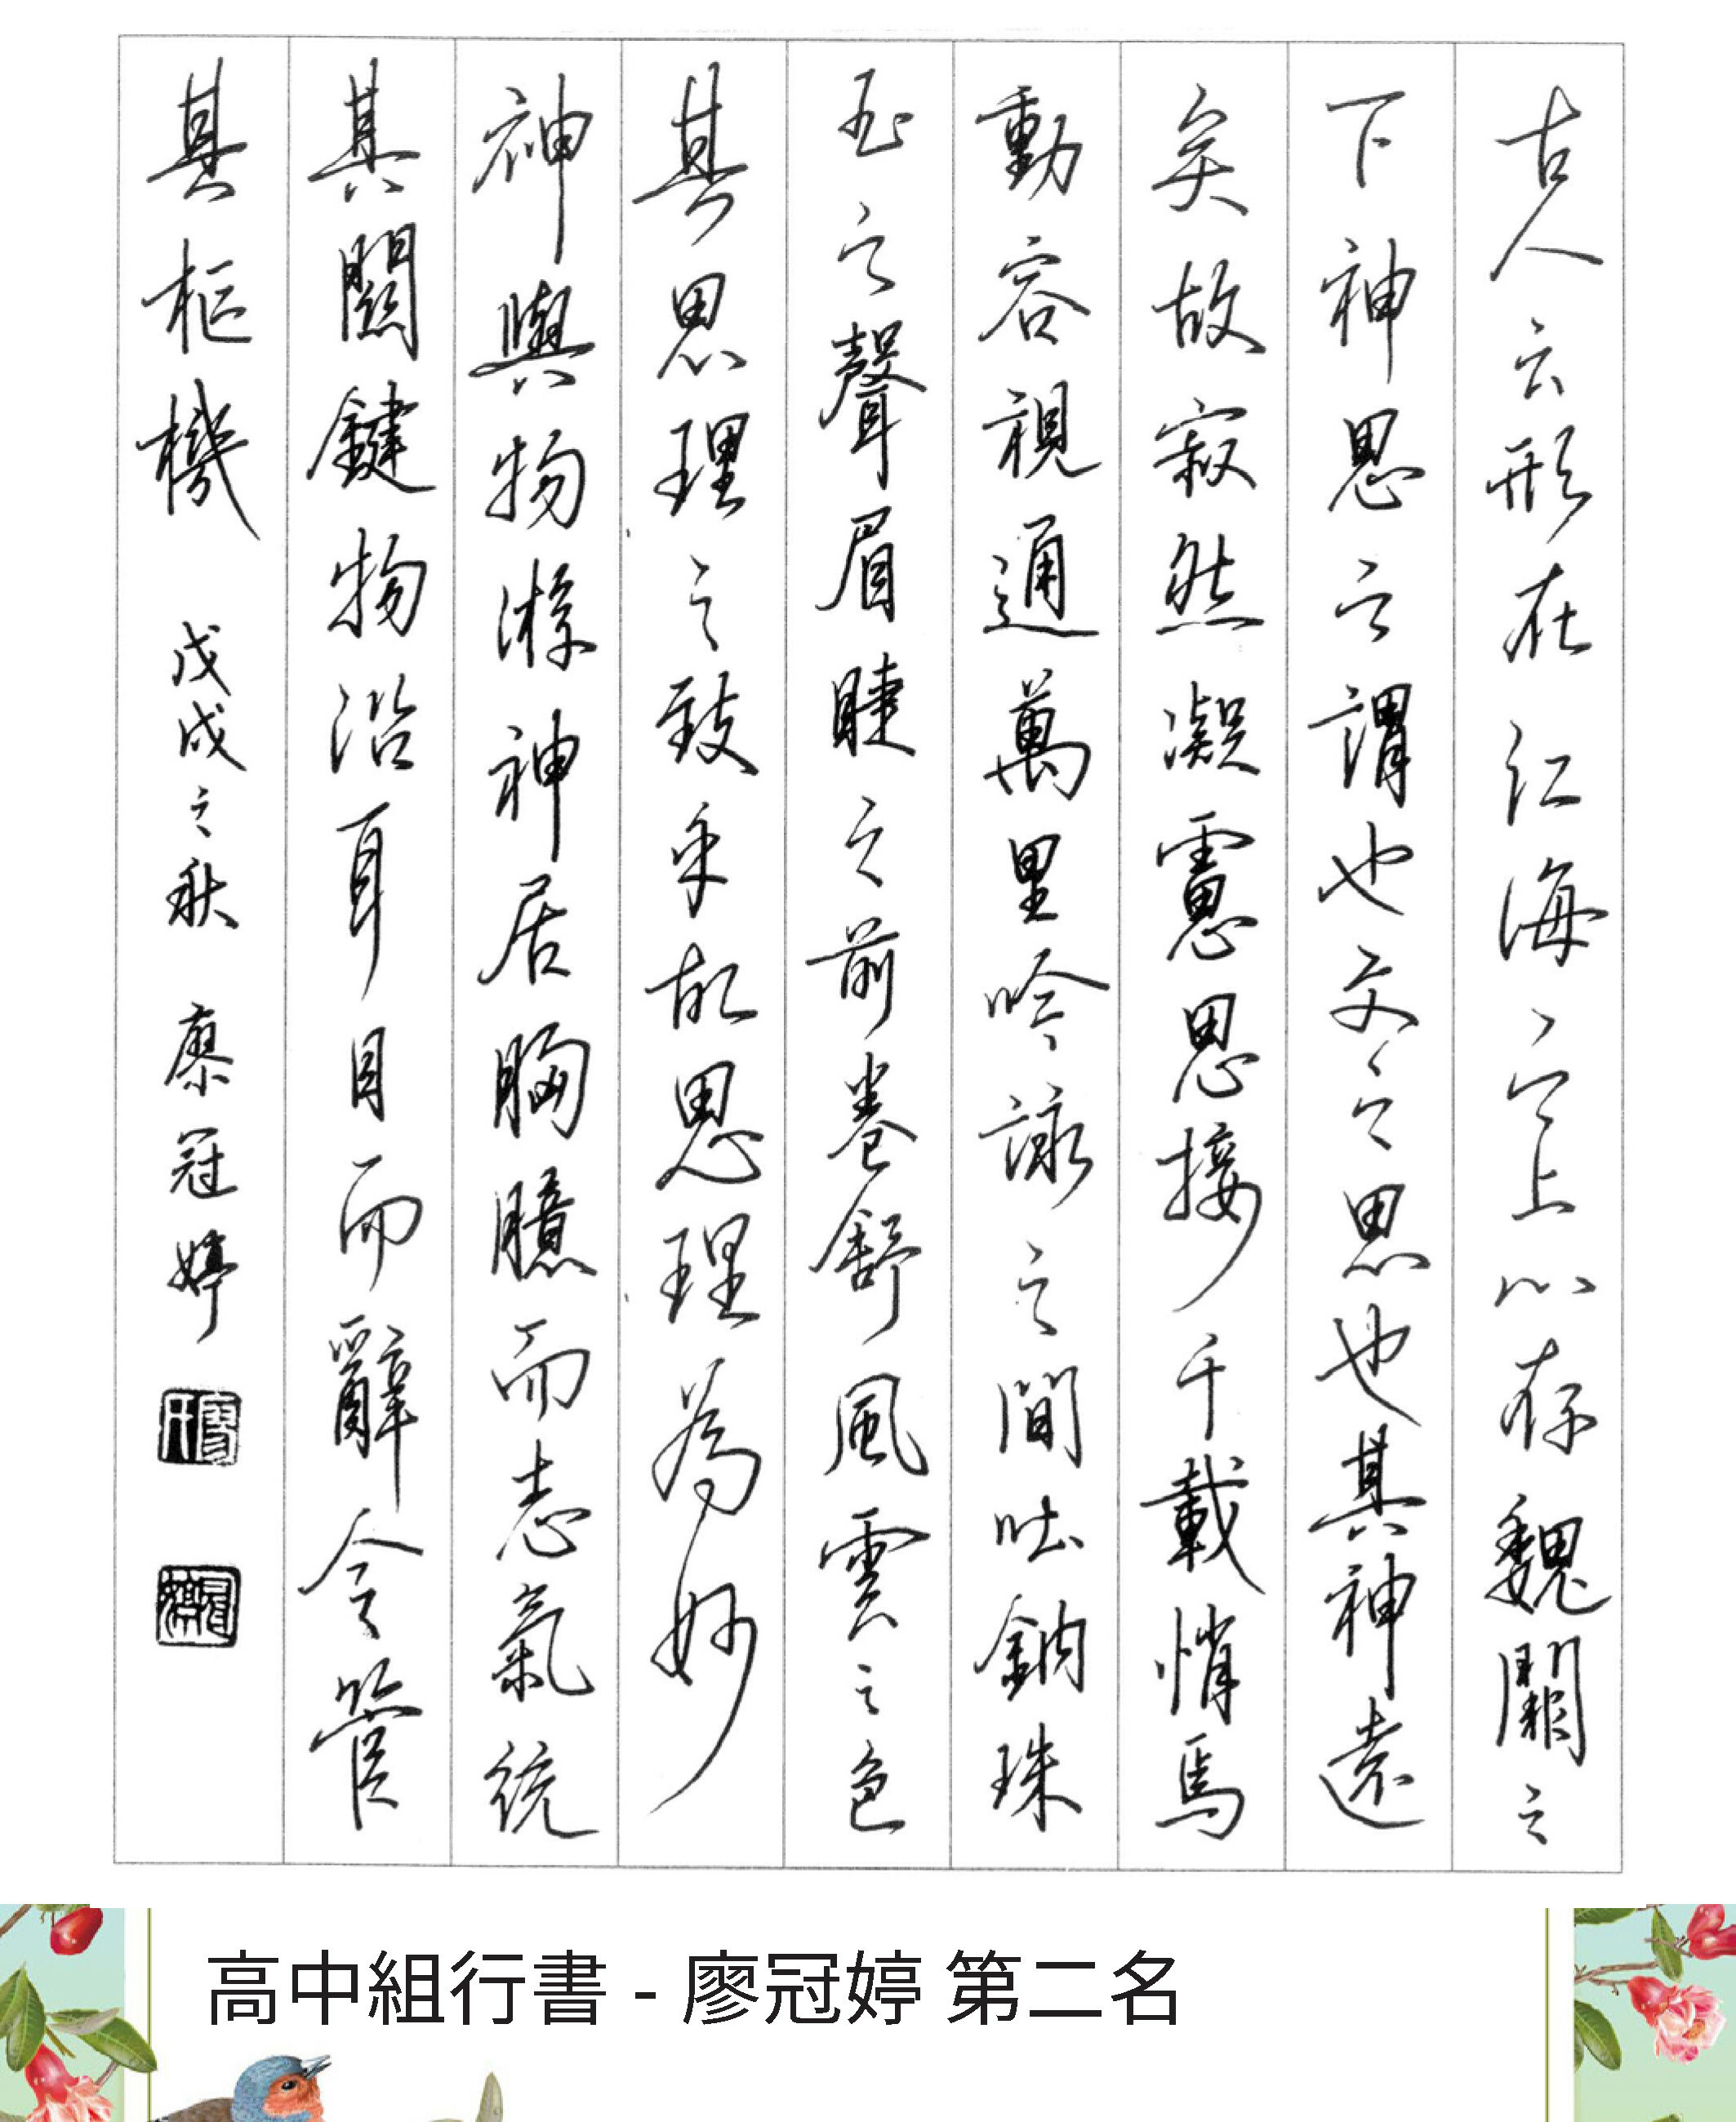 古人云形在江海之上心存魏闕之
下神思之謂也文之思也其神遠
矣故寂然凝慮思接千載悄焉
動容視通萬里吟詠之間吐納珠
玉之聲眉睫之前卷舒風雲之色
其思理之致乎故思理為妙
神與物游神居胸臆而志氣統
其關鍵物沿耳目而辭令管
其樞機 戊戌之秋 廖冠婷
高中組行書 - 廖冠婷 第二名